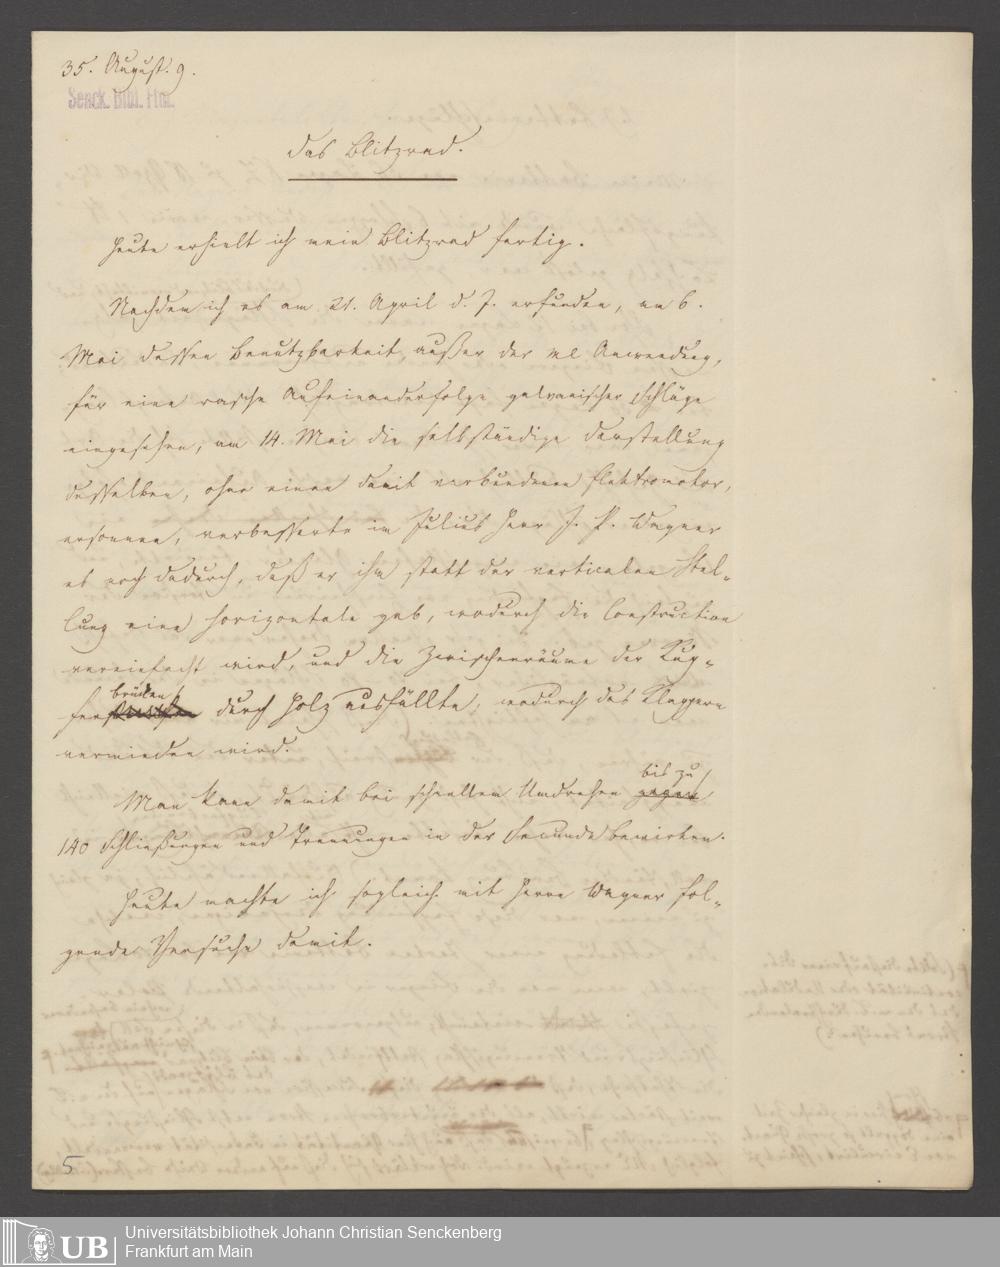 35. August. 9.
Senck. Bibl. Ffm.
Das Blitzrad.
Heute erhielt ich mein Blitzrad fertig.
Nachdem ich es am 21. April d. J. erfunden, am 6.
Mai dessen Benutzbarkeit, außer der Anwendung,
für eine rasche Aufeinanderfolge galvanischer Schläge
eingesehen, am 14. Mai die selbständige Darstellung
desselben, ohne einen damit verbundenen Elektromotor,
ersonnen, verbesserte im Julius Herr J. P. Wagner
es noch dadurch, daß er ihm statt der verticalen Stel-
lung eine horizontale gab, wodurch die Construction
vereinfacht wird, und die Zwischenräume der Kup-
brücken
fer durch Holz ausfüllte, wodurch das Klappern
vermieden wird.
bis zu
Man kann damit bei schnellem Umdrehen gegen
140 Schließungen und Trennungen in der Secunde bewirken.
Heute machte ich sogleich mit Herrn Wagner fol-
gende Versuche damit.
5
UB
Universitätsbibliothek Johann Christian Senckenberg
Frankfurt am Main